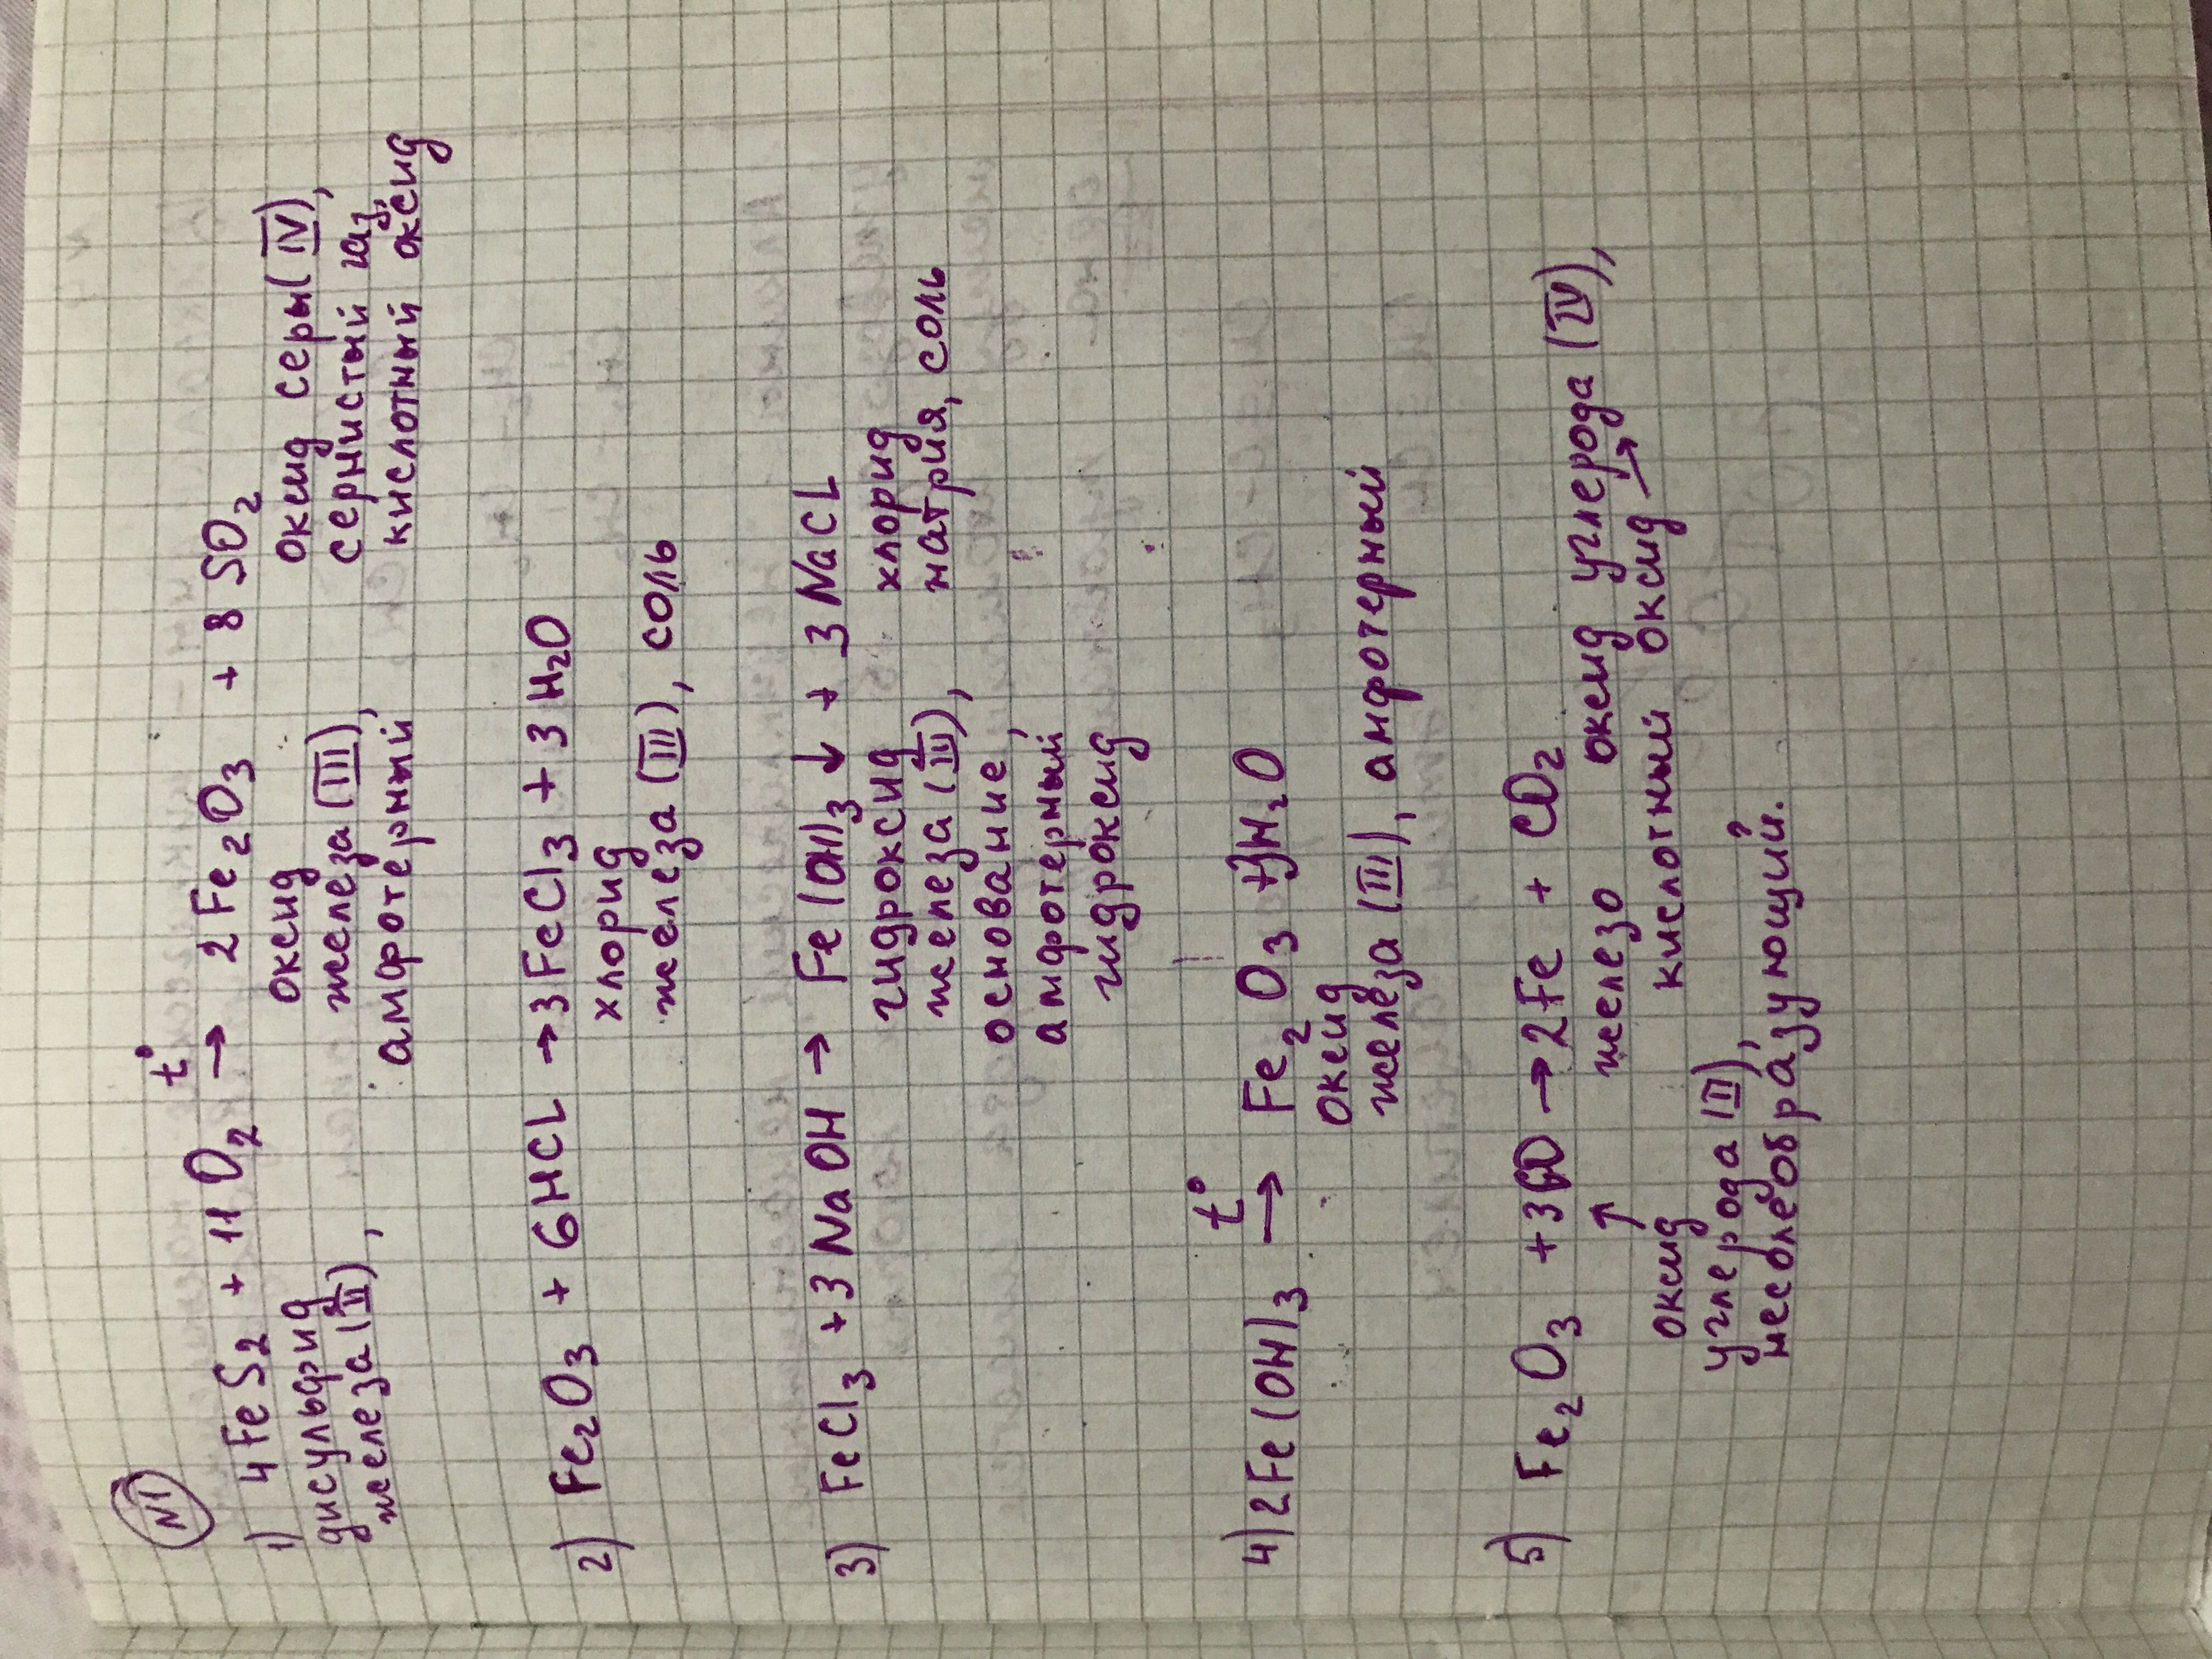 N1
1) 4FeS₂ + 11O₂ t°→ 2Fe₂O₃ + 8SO₂
дисульфид железа (II),
оксид железа (III), амфотерный
оксид серы (IV), сернистый газ, кислотный оксид
2) Fe₂O₃ + 6HCl → 3FeCl₃ + 3H₂O
хлорид
железа (III), соль
3) FeCl₃ + 3NaOH → Fe(OH)₃↓ + 3NaCl
гидроксид железа (III), основание, амфотерный гидроксид
хлорид натрия, соль
4) 2Fe(OH)₃ t°→ Fe₂O₃ + 3H₂O
оксид
железа (III), амфотерный
5) Fe₂O₃ + 3CO → 2Fe + CO₂
железо
оксид углерода (IV),
кислотный оксид →
↑
оксид
углерода (II),
несолеобразующий.